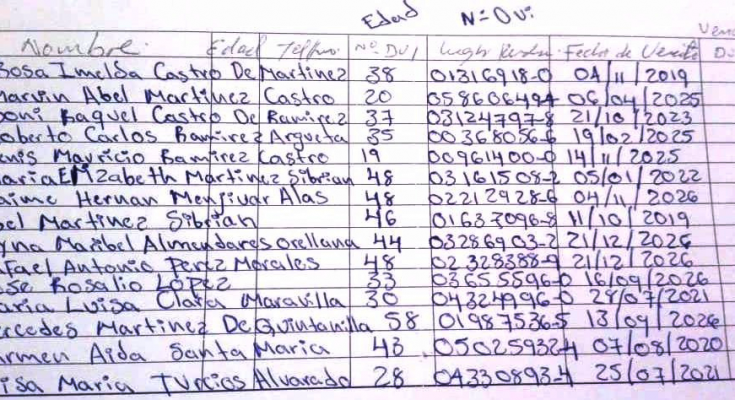 Edad Nº Dui
Nombre. Edad Nº DUI Fecha de Vencito
Rosa Imelda Castro De Martinez 38 01316918-0 04/11/2019
Marvin Abel Martinez Castro 20 058606494 06/04/2025
Raquel Castro De Ramirez 37 03124797-8 21/10/2023
Roberto Carlos Ramirez Argueta 35 00368056-6 19/02/2025
Mauricio Ramirez Castro 19 00961400-0 14/11/2025
Maria Elizabeth Martinez Sibrian 48 03161508-2 05/01/2022
Jaime Hernan Menjivar Alas 48 02212928-6 04/11/2026
Martinez Sibrian 46 01637096-8 11/10/2019
Maribel Almendares Orellana 44 03286903-2 21/12/2026
Rafael Antonio Perez Morales 48 02328388-9 21/12/2026
Jose Rosalio LOPEZ 33 03655596-0 16/09/2026
Maria Luisa Clara Maravilla 30 04324996-0 28/07/2021
Mercedes Martinez De Quintanilla 58 01987536-5 13/09/2026
Carmen Aida Santa Maria 43 050259324 07/08/2020
Maria Turcios Alvarado 28 04330893-4 25/07/2021